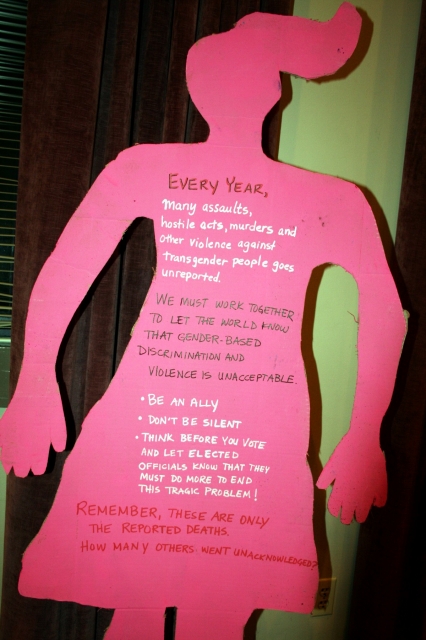 EVERY YEAR,
Many assaults,
hostile acts, murders and
other violence against
transgender people goes
unreported.
WE MUST WORK TOGETHER
TO LET THE WORLD KNOW
THAT GENDER-BASED
DISCRIMINATION AND
VIOLENCE IS UNACCEPTABLE.
• BE AN ALLY
• DON'T BE SILENT
• THINK BEFORE YOU VOTE
AND LET ELECTED
OFFICIALS KNOW THAT THEY
MUST DO MORE TO END
THIS TRAGIC PROBLEM!
REMEMBER, THESE ARE ONLY
THE REPORTED DEATHS.
HOW MANY OTHERS WENT UNACKNOWLEDGED?